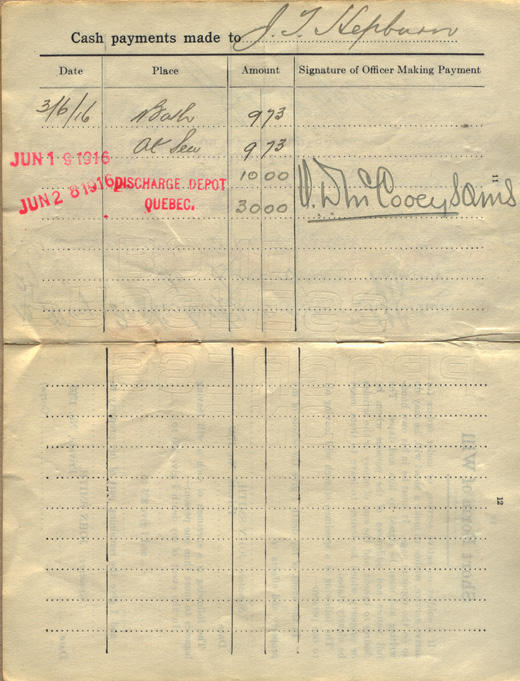 Cash payments made to J. T. Hepburn
Date Place Amount Signature of Officer Making Payment
3/6/16 Bath 9 73
At Sea 9 73
JUN 19 1916 10 00
JUN 28 1916 DISCHARGE DEPOT QUEBEC. 30 00 V. D. McCooey Sams
11
12
Short Form of Will